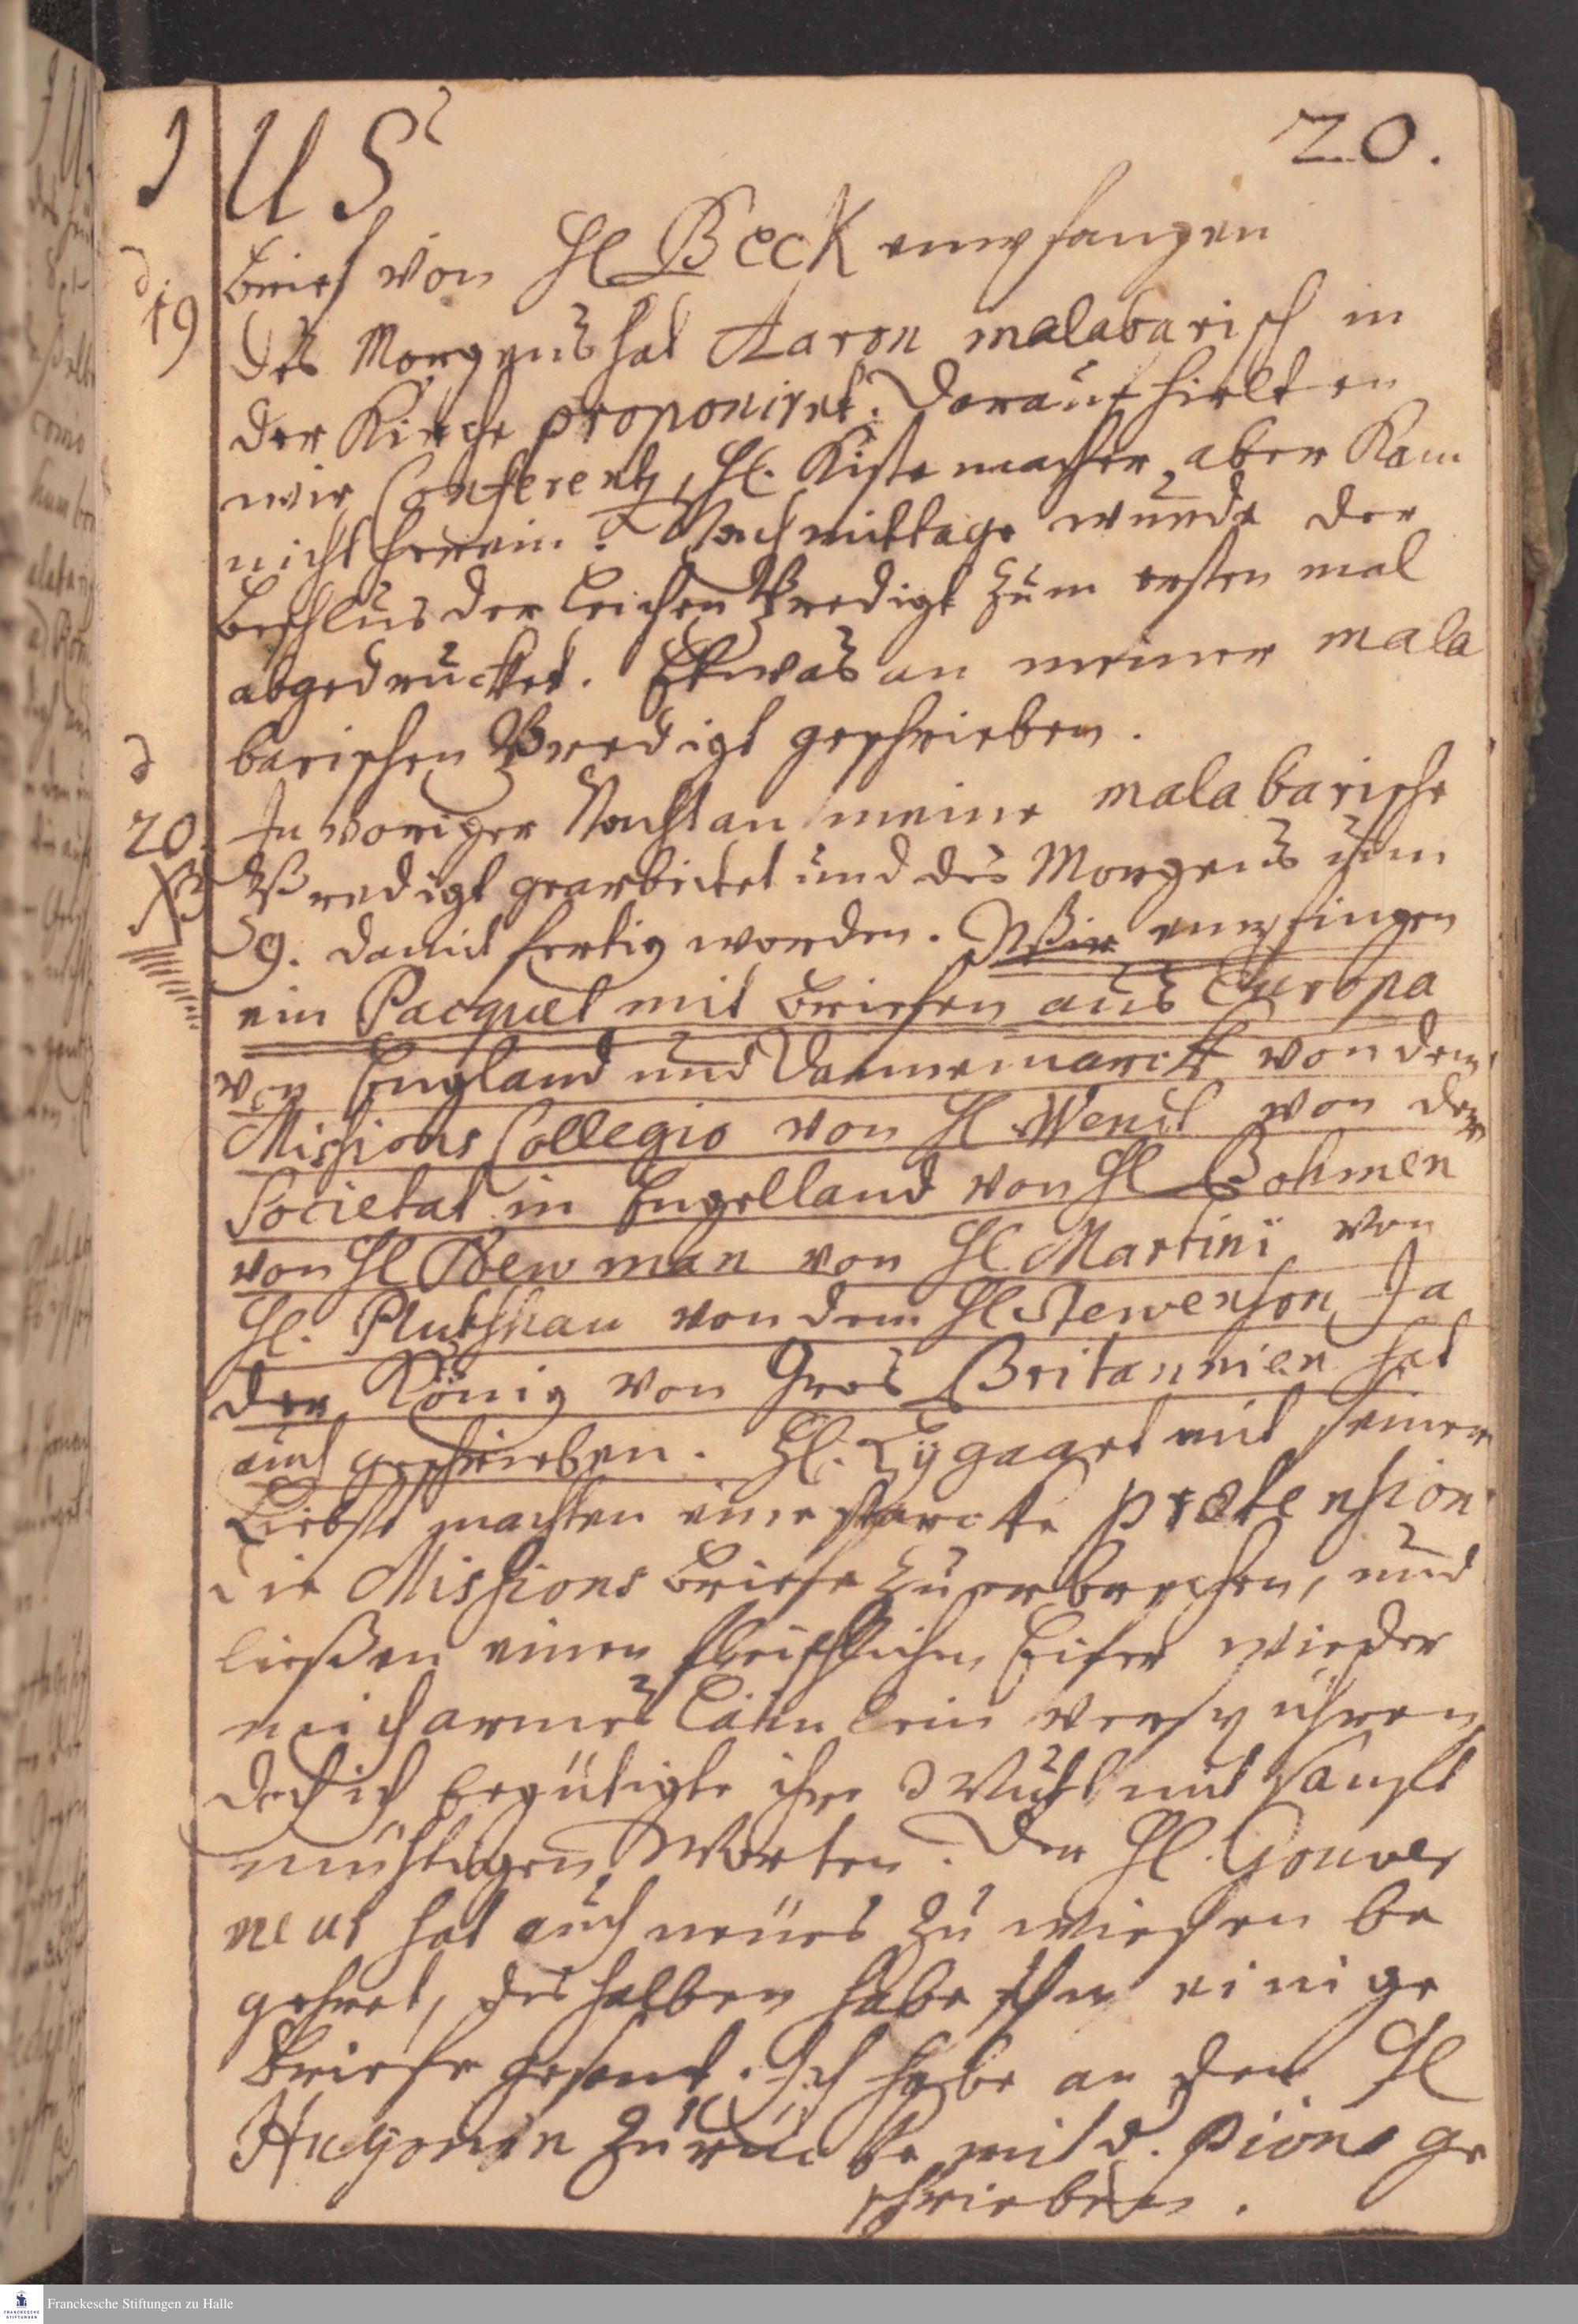 J U S 20.
Brief von Hl Beck empfangen
d. 19 Des Morgens hat Aaron malabarisch in
der Kirche proponiret. Darauf hielten
wir Conferentz, Hl. Kistemacher aber kam
nicht herein. Nachmittage wurde der
Beschlus der Leichen Predigt zum ersten mal
abgedrucket. Etwas an meiner mala
barischen Predigt geschrieben.
d 20. In voriger Nacht an meine malabarische
Predigt gearbeitet und des Morgens um
9. damit fertig worden. Wir empfingen
ein Pacquet mit Briefen aus Europa
von England und Dannemarck von dem
Missions Collegio von Hl. Wendt von der
Societat in Engelland von Hl Bohmen
von Hl Newman von Hl Martini von
Hl. Plutschau von dem Hl Stevenson Ja
der König von Gros Britannien hat
auch geschrieben. Hl. Lygaart mit seiner
Liebste machten eine starcke prætension
die Missions Briefe zu erbrechen, und
ließen einen fleischlichen Eifer wieder
mich armes verspühren,
doch ich begütigte ihre Wuht mit sanft
mühtigen Worten. Der Hl. Gouver
neur hat auch neues zu wissen be
gehret, deshalben habe ihm einige
Briefe gesant. Ich habe an den Hl
Hugonin zurücke mit d. pions ge
schrieben.
Franckesche Stiftungen zu Halle